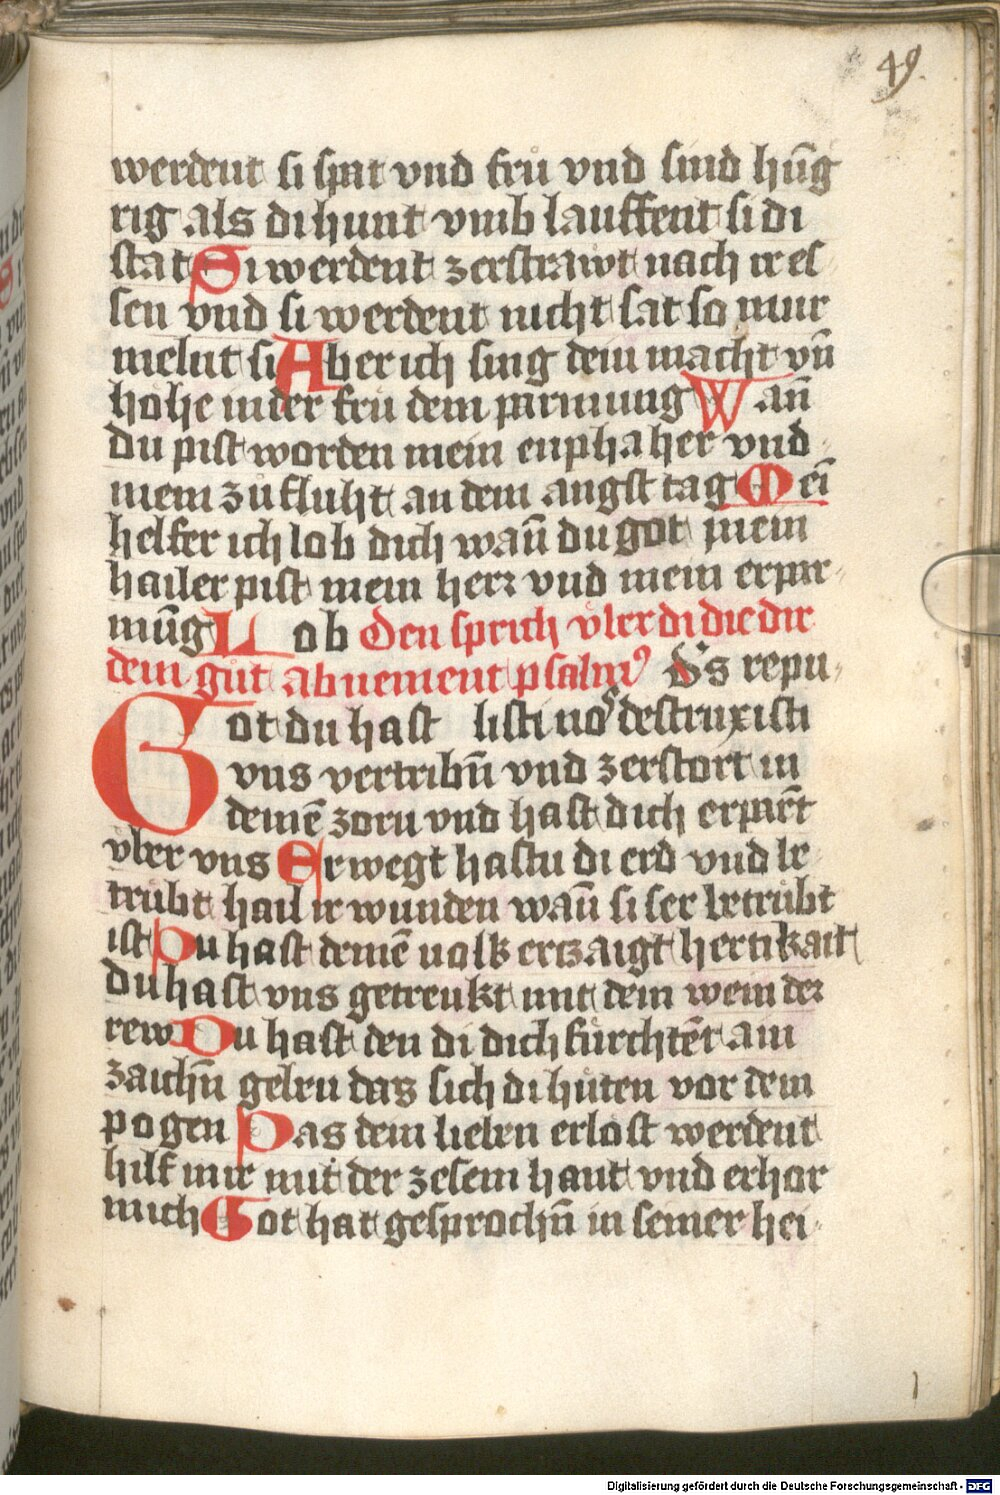 49.
werdent si spat vnd frů vnd sind hūg
rig als di hunt vmb lauffent si di
stat Si werdent zerstrawt nach ir es
sen vnd si werdent nicht sat so mur
melnt si Aber ich sing dein macht vn̄
hohe in der frů dein parmung Wan̄
du pist worden mein enphaher vnd
mein zůfluht an dem angst tag Mei̅
helfer ich lob dich wan̄ du got mein
hailer pist mein herr vnd mein erpar
mūg Lob Den sprich vͤber di die dir
dein gůt abnement psalmꝰ Ds repu
Got du hast listi nos destruxisti
vns vertribn̄ vnd zerstort in
deinē zorn vnd hast dich erparmt
vber vns Erwegt hastu di erd vnd be
trůbt hail ir wunden wan̄ si ser betrůbt
ist Du hast deinē volk ertzaigt hertikait
du hast vns getrenkt mit dem wein der
rew Du hast den di dich fůrchtēt ain
zaichn̄ geben das sich di hůten vor dem
pogen Das dein lieben erlost werdent
hilf mir mit der zesem hant vnd erhor
mich Got hat gesprochn̄ in seiner hei
Digitalisierung gefördert durch die Deutsche Forschungsgemeinschaft - DFG